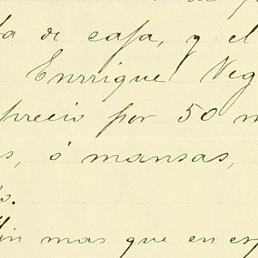 a de casa, y el
Enrrique Veg
precio por 50 m
s, ó mansas,
s.
in mas que en es